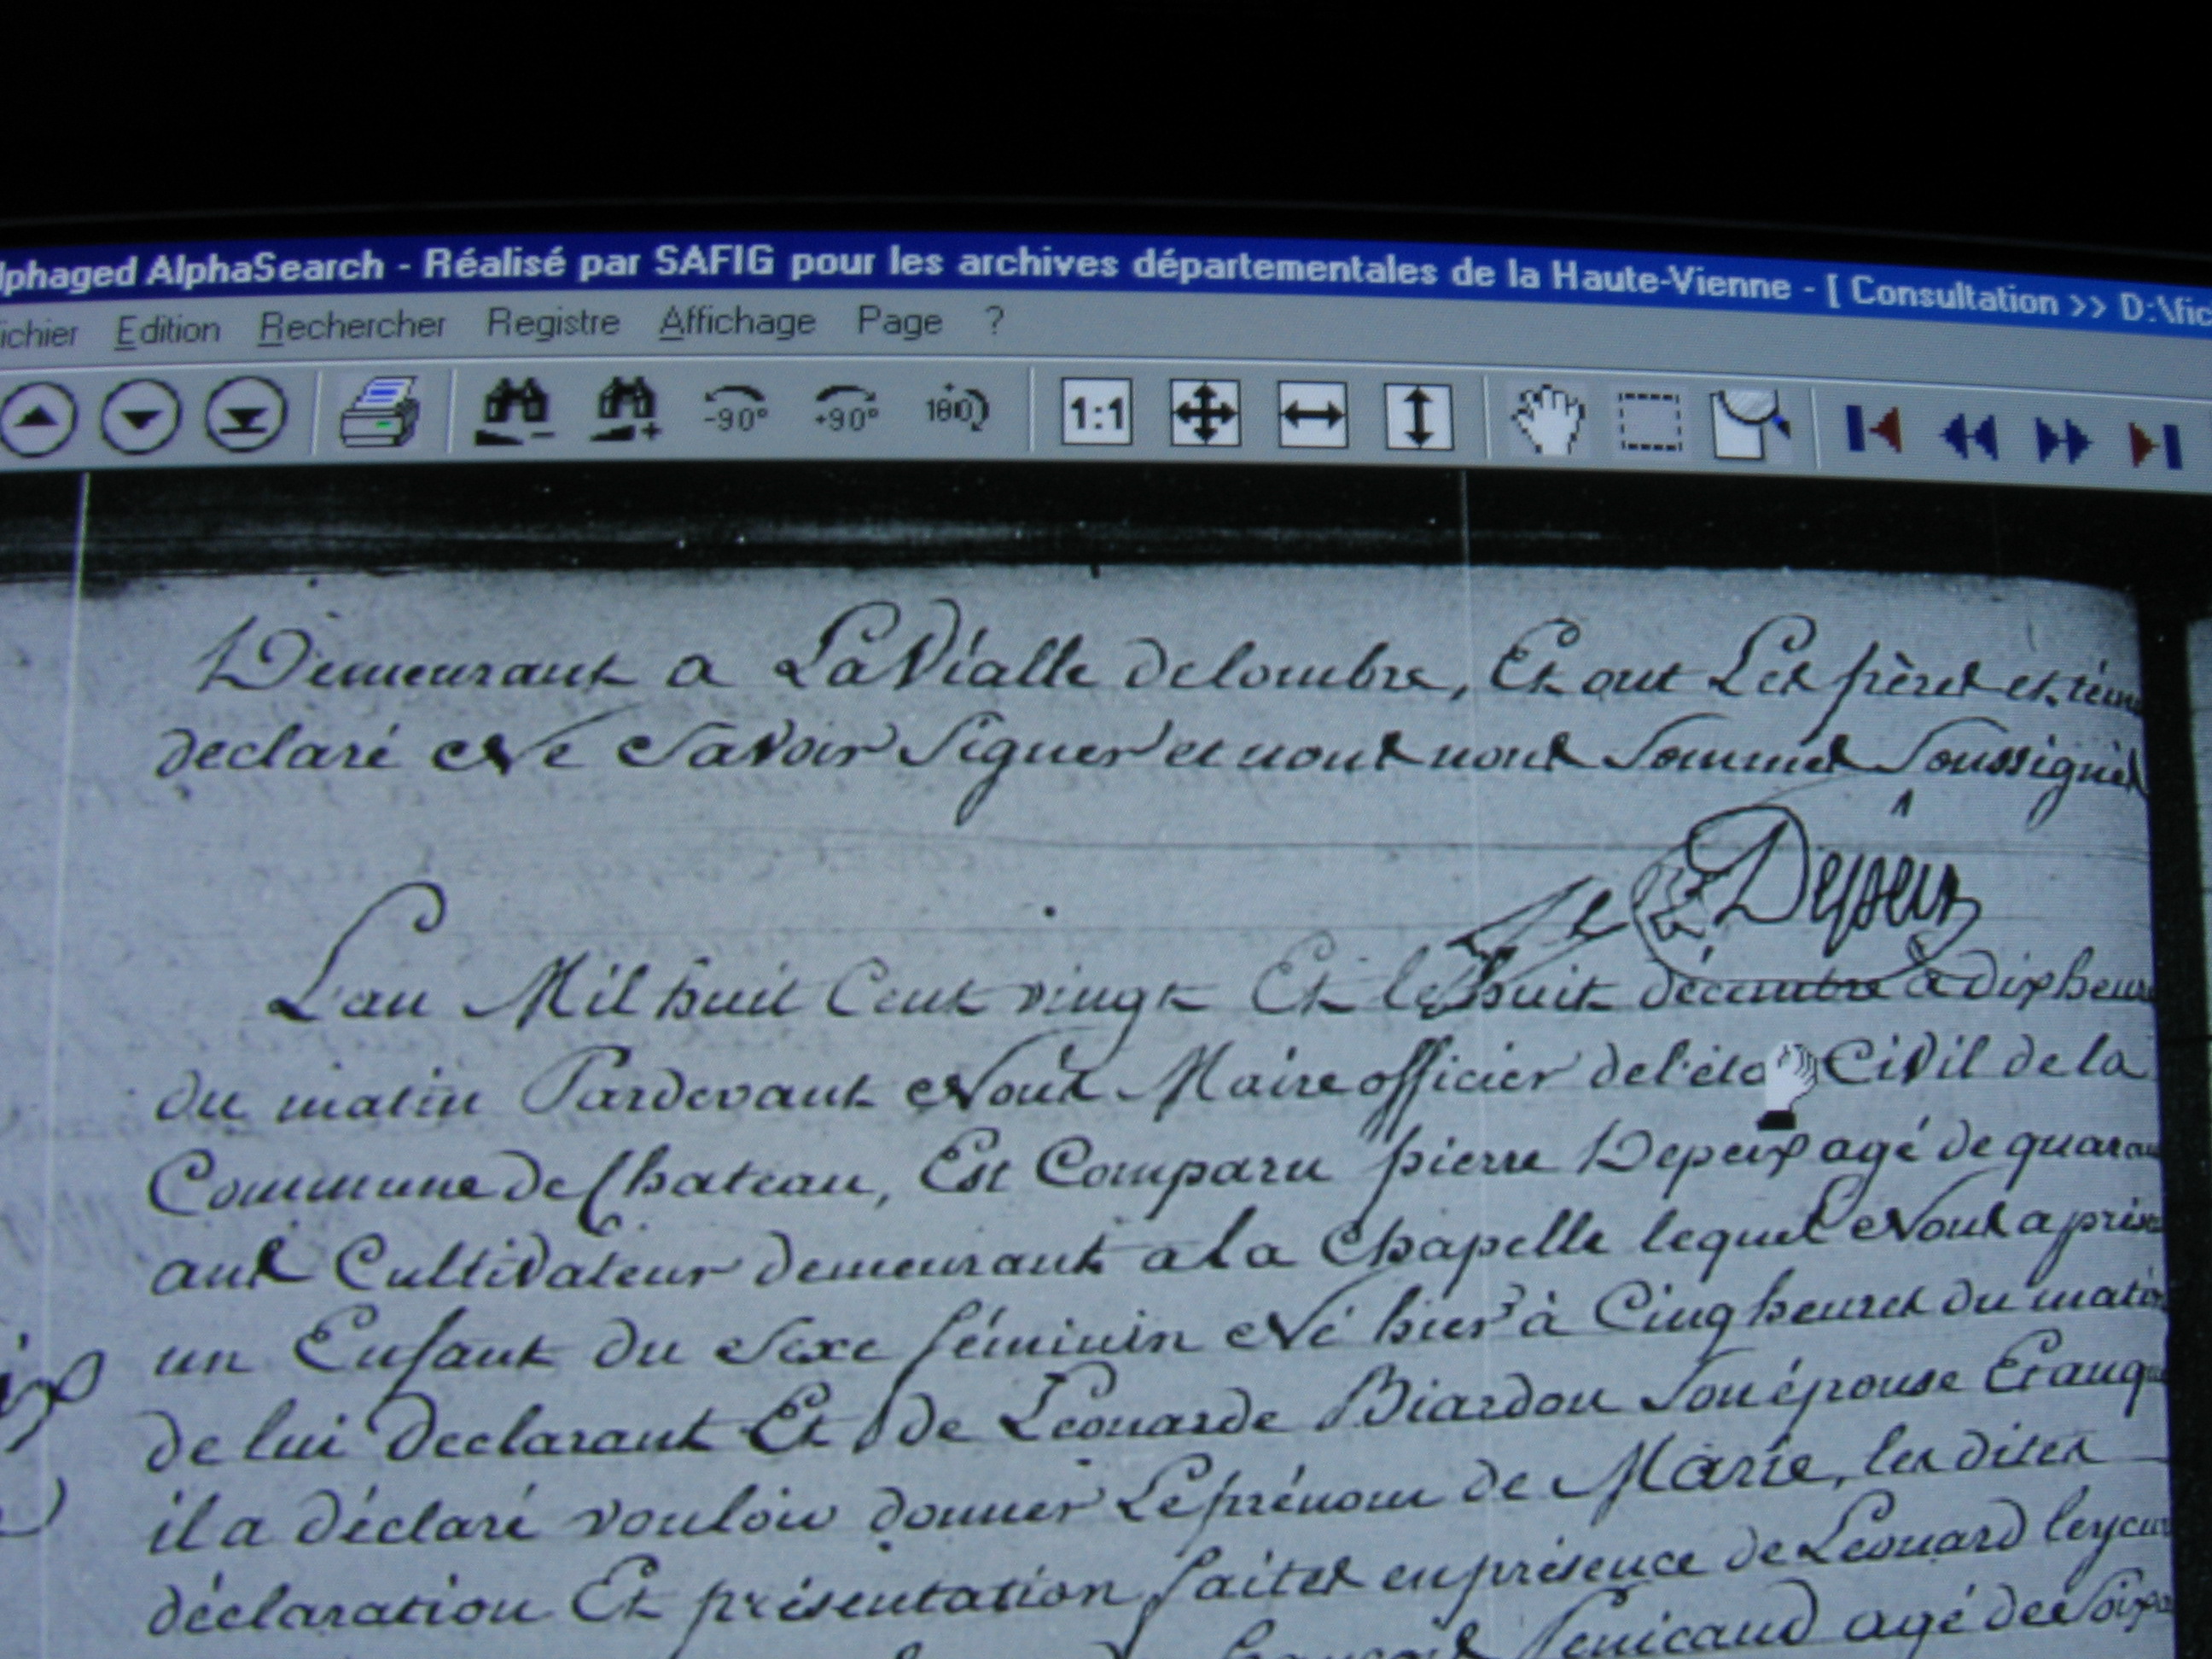 lphaged AlphaSearch - Réalisé par SAFIG pour les archives départementales de la Haute-Vienne - [ Consultation >> D:\fic
ichier Edition Rechercher Registre Affichage Page ?
-90° +90° 180 1:1
Demeurant a La Vialle delombre, Et ont Les pères et tém
declaré Ne Savoir Signer et nous nous Sommes Soussignés
L'an Mil huit Cent vingt Et le huit décembre à dix heure
du matin Pardevant Nous Maire officier de l'éta Civil de la
Commune de Chateau, Est Comparu pierre Depeix agé de quaran
ans Cultivateur demeurant a la Chapelle lequel Nous a prése
un Enfant du Sexe féminin Né hier à Cinq heures du matin
de lui Declarant Et de Léonarde Biardou Son épouse Et auqu
il a déclaré vouloir donner Le prénom de Marie, les dites
déclaration Et présentation faites en présence de Léonard leycu
agé de Soixa